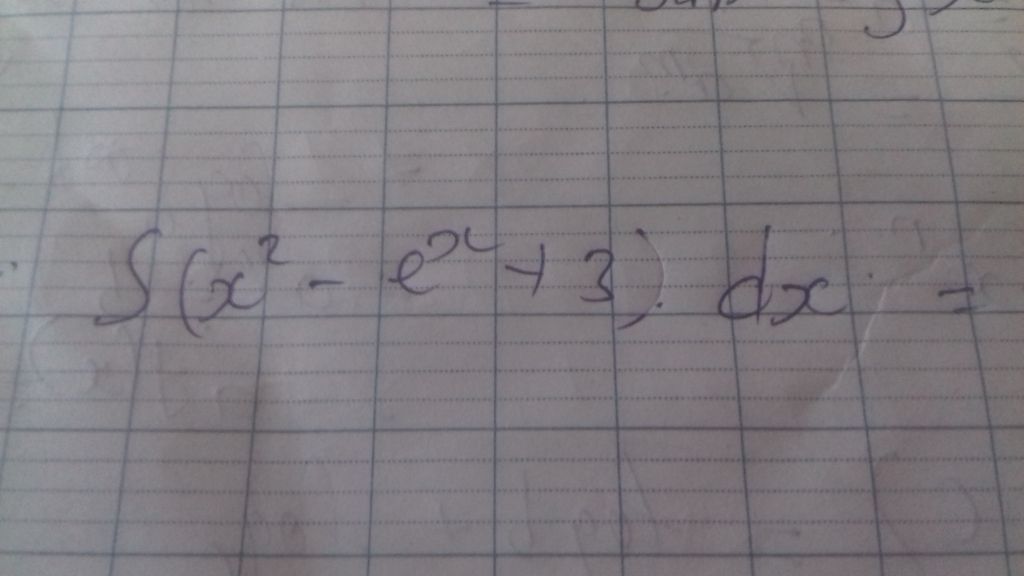 ∫(x² - eˣ + 3). dx =